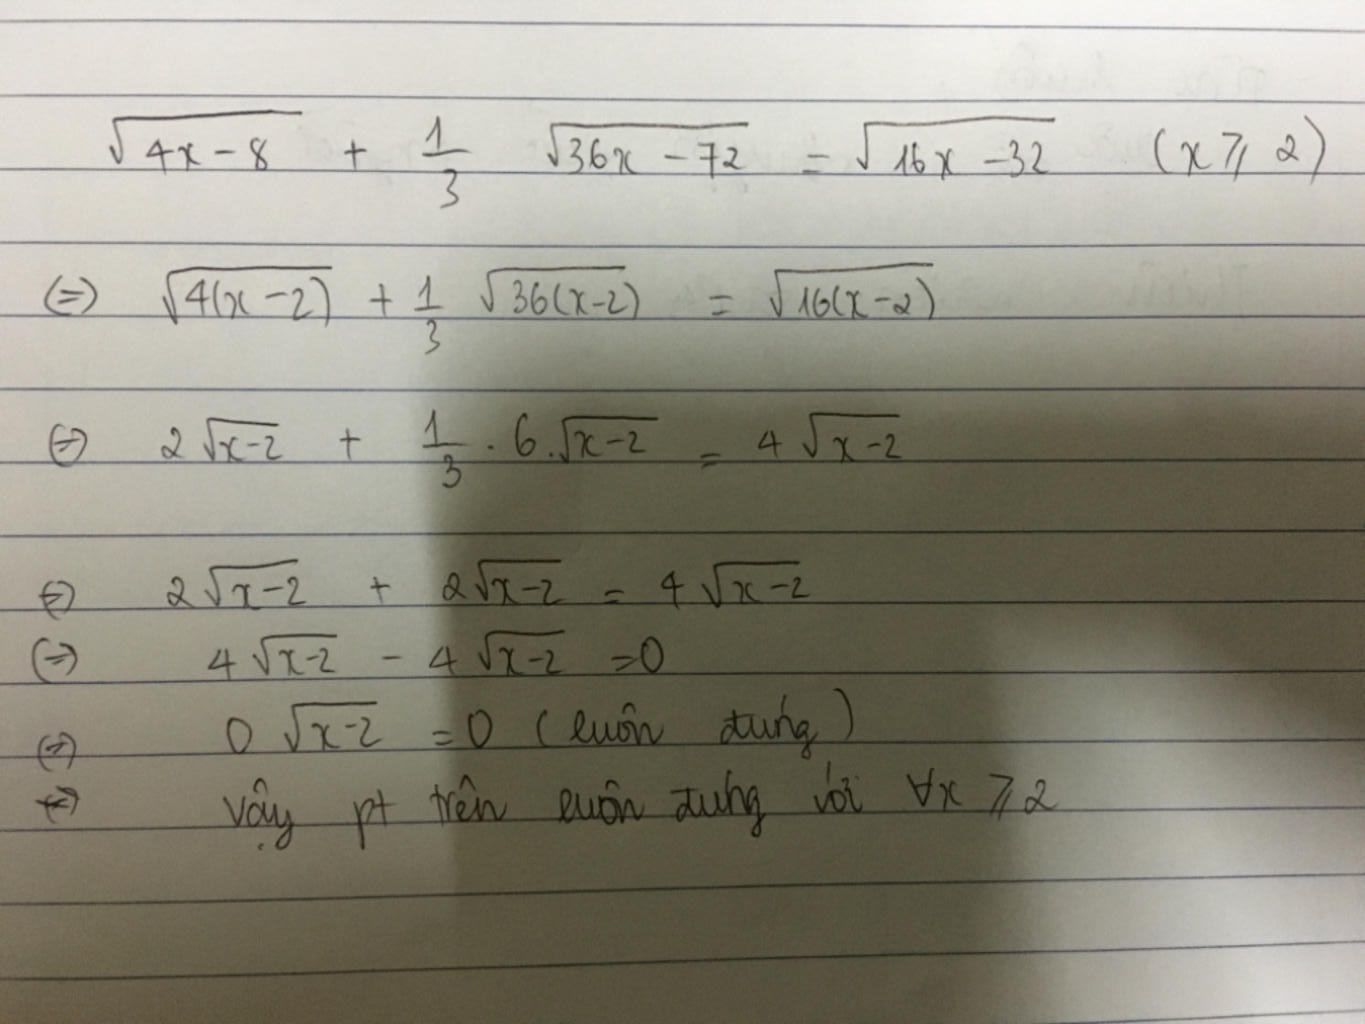 √(4x - 8) + 1/3 √(36x - 72) = √(16x - 32) (x ⩾ 2)
(=) √(4(x - 2)) + 1/3 √(36(x - 2)) = √(16(x - 2))
(=) 2√(x-2) + 1/3 . 6.√(x-2) = 4√(x-2)
(=) 2√(x-2) + 2√(x-2) = 4√(x-2)
(=) 4√(x-2) - 4√(x-2) = 0
(=) 0√(x-2) = 0 (luôn đúng)
(=) vậy pt trên luôn đúng với ∀x ⩾ 2